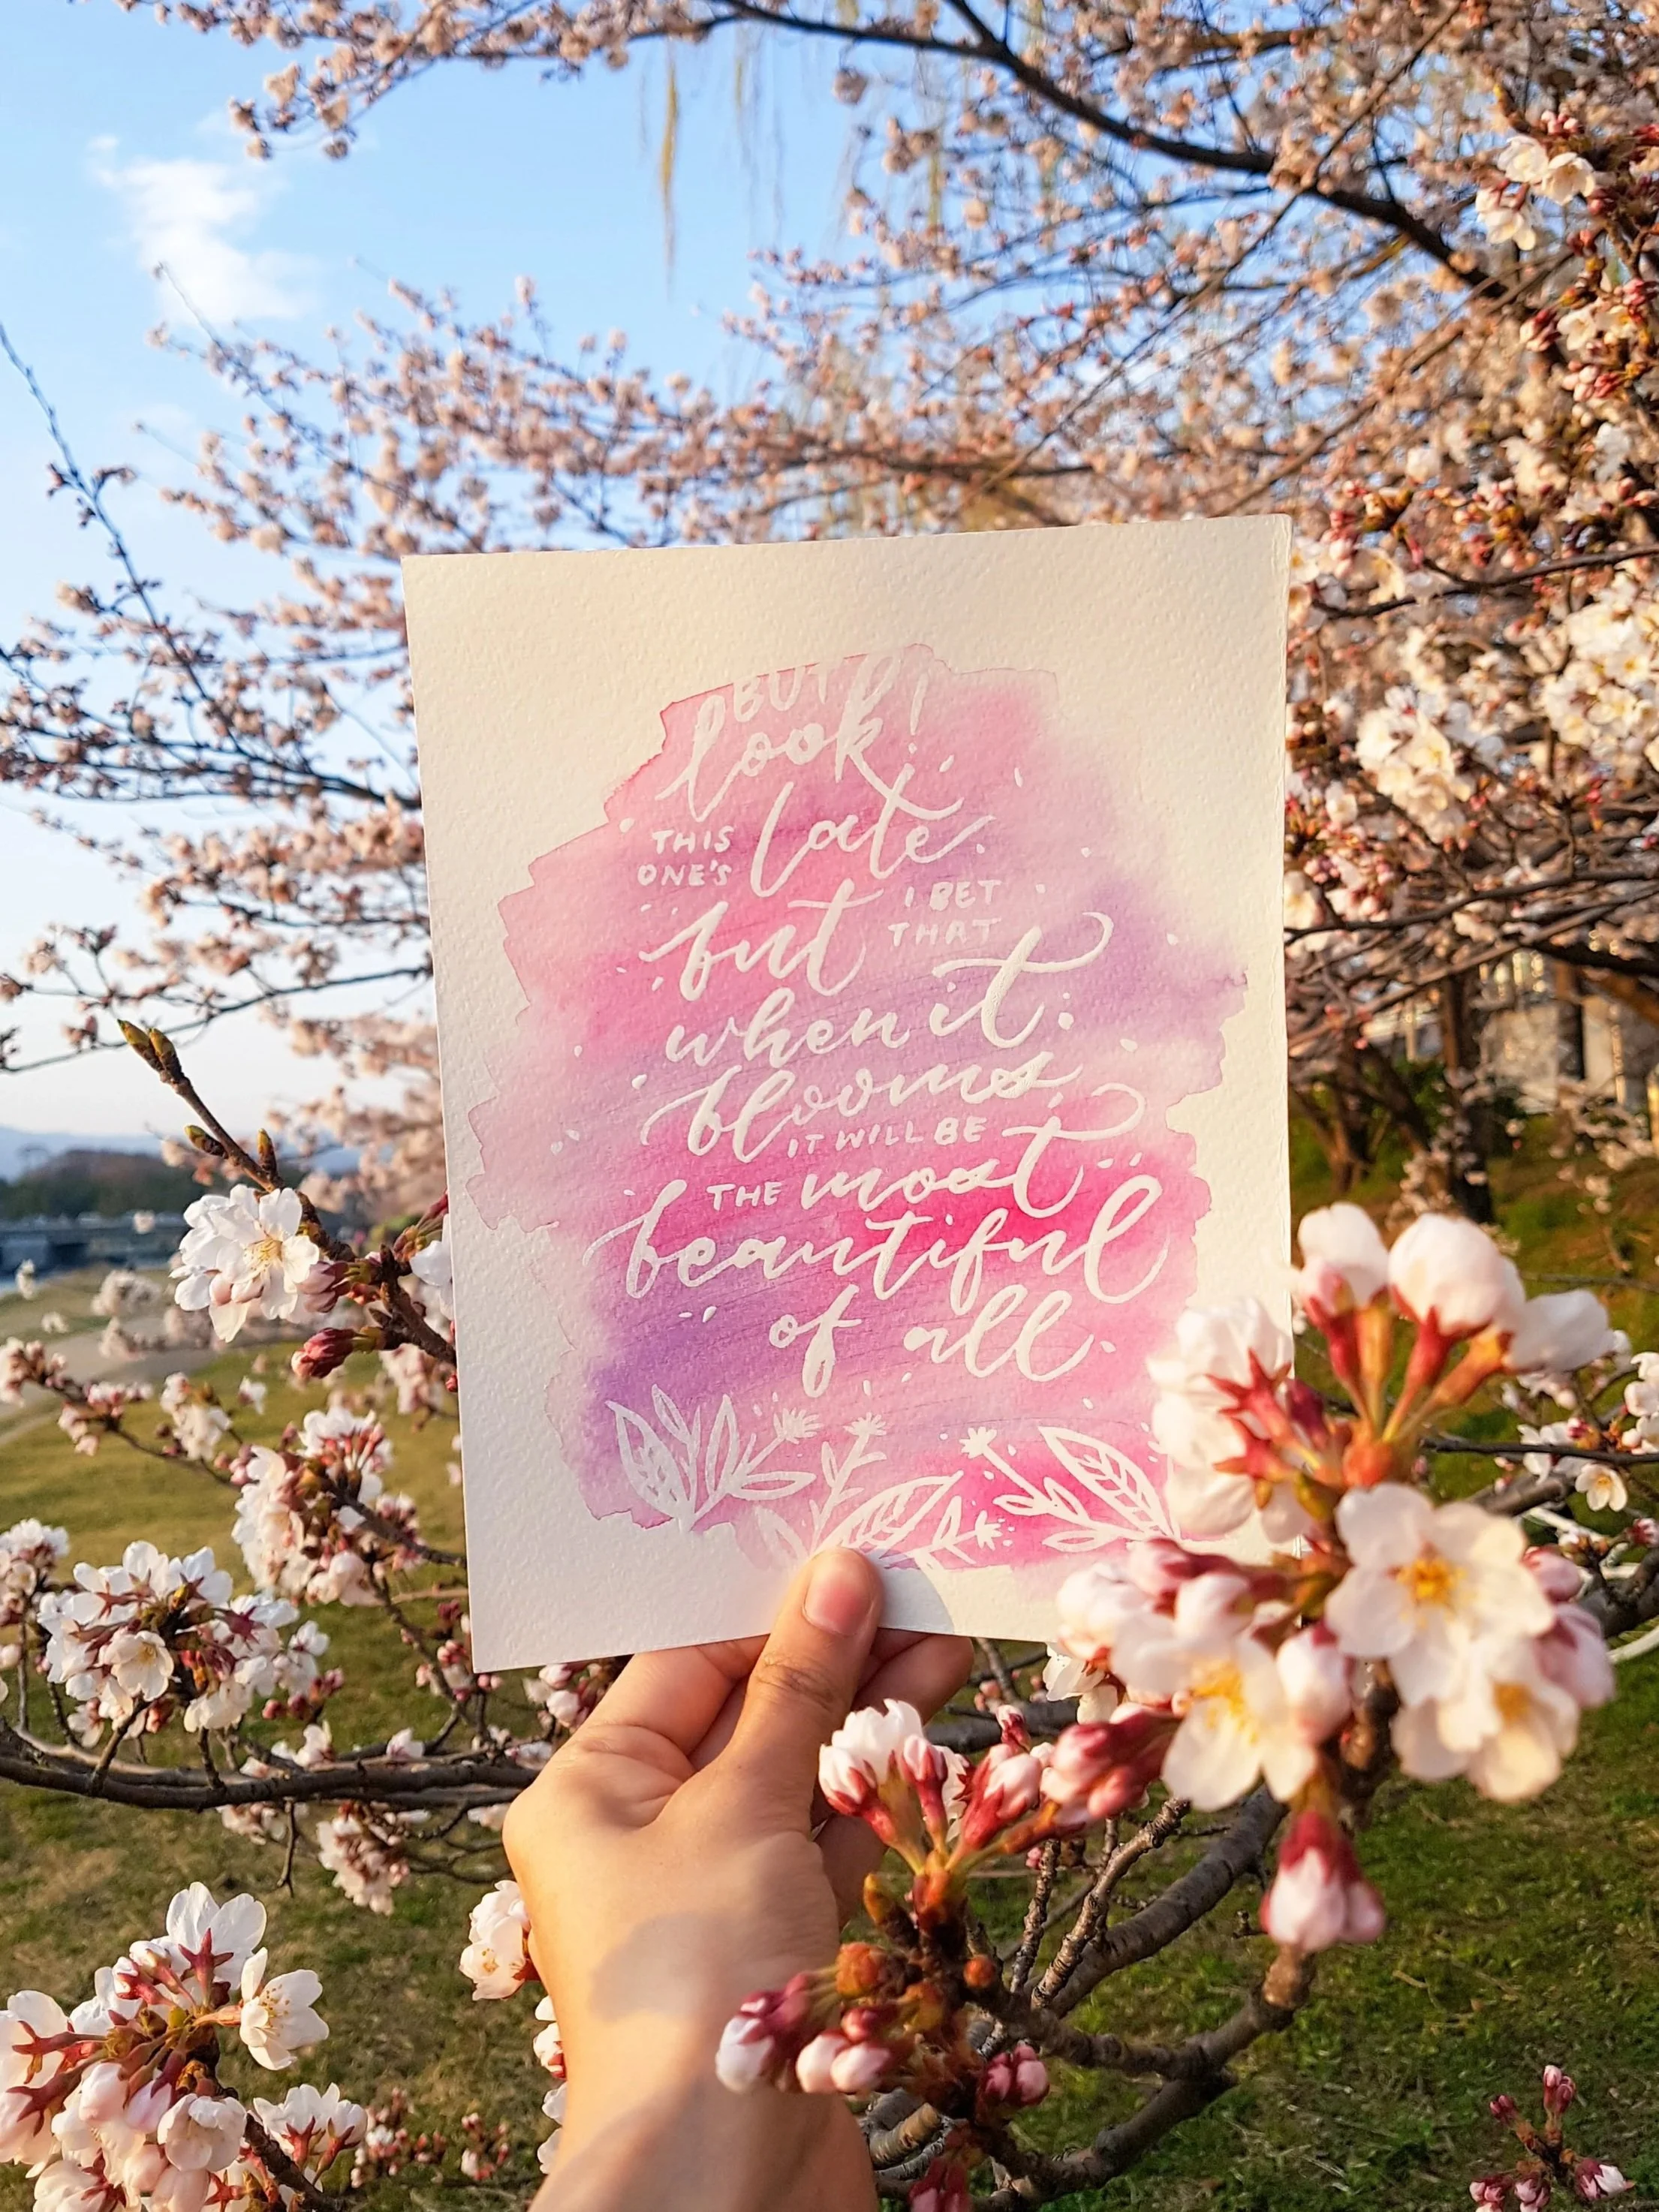 BUT
look!
THIS ONE'S late.
but I BET THAT
when it
blooms,
IT WILL BE
THE most
beautiful
of all.